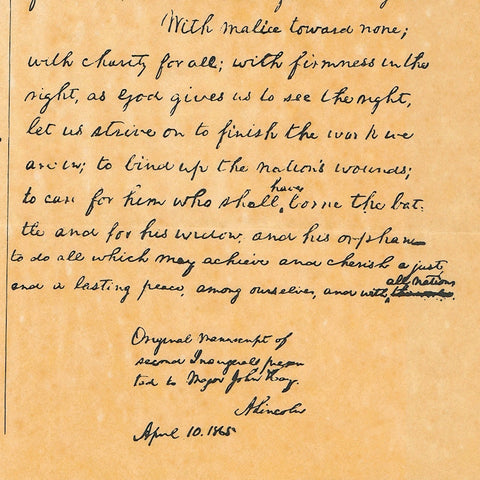 With malice toward none;
with charity for all; with firmness in the
right, as God gives us to see the right,
let us strive on to finish the work we
are in; to bind up the nation's wounds;
to care for him who shall have borne the bat-
tle and for his widow, and his orphan
to do all which may achieve and cherish a just,
and a lasting peace, among ourselves, and with all nations.
Original manuscript of
second Inaugeral presen
ted to Major John Hay.
A Lincoln
April 10. 1865